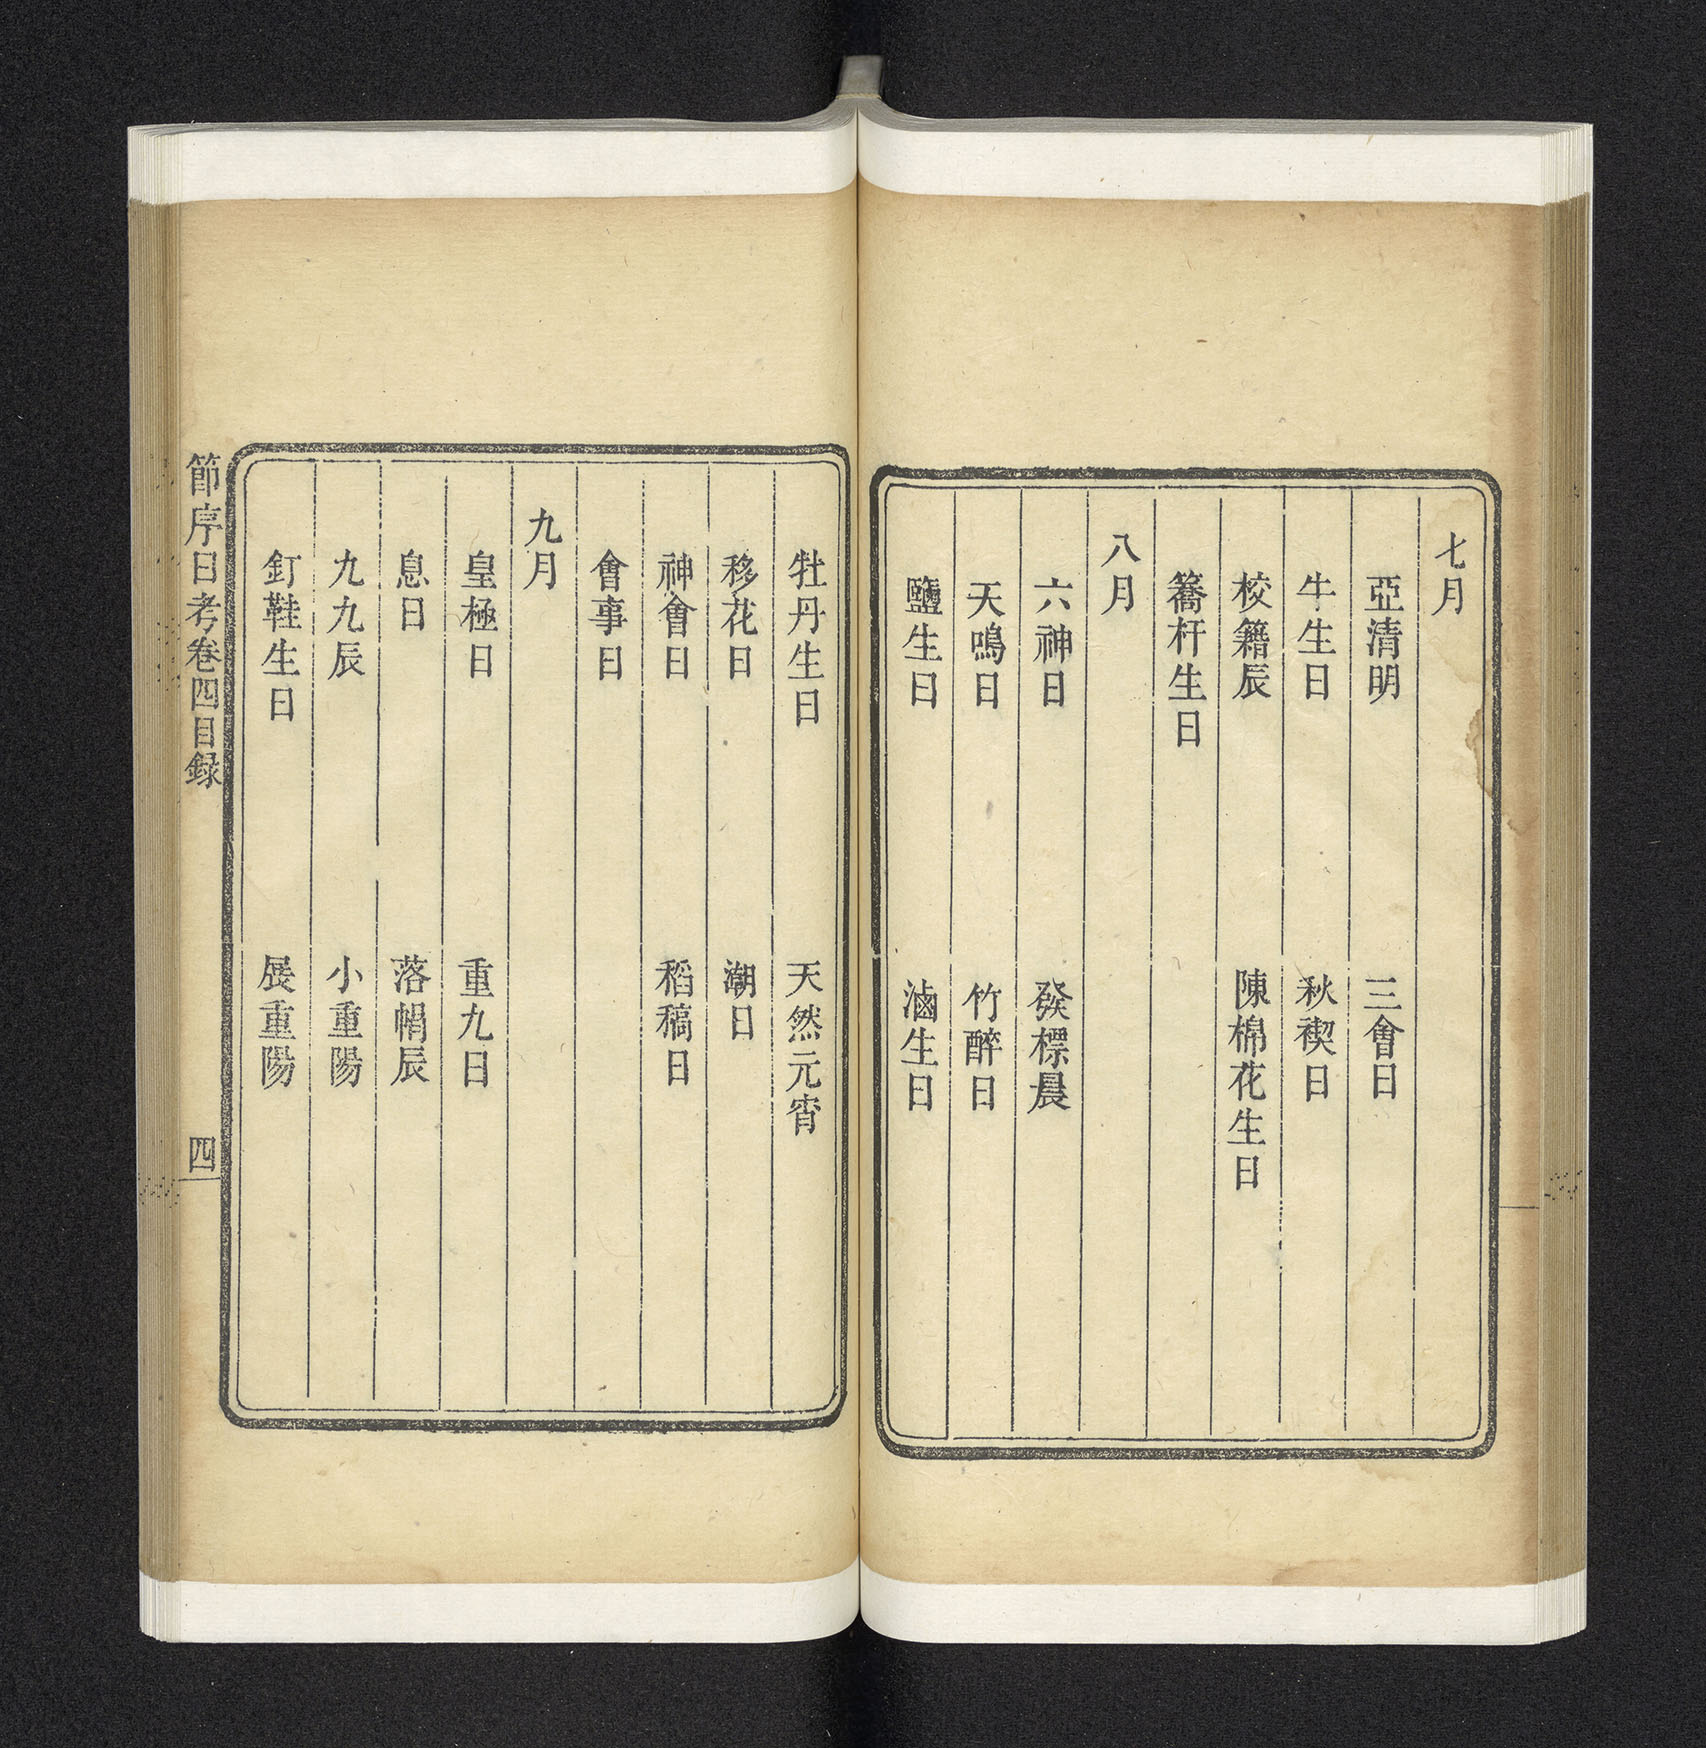 七月
亞清明 三會日
牛生日 秋禊日
校籍辰 陳棉花生日
簥杆生日
八月
六神日 發標晨
天鳴日 竹醉日
鹽生日 滷生日
牡丹生日 天然元宵
移花日 潮日
神會日 稻稿日
會事日
九月
皇極日 重九日
息日 落帽辰
九九辰 小重陽
釘鞋生日 展重陽
節序日考卷四目録 四